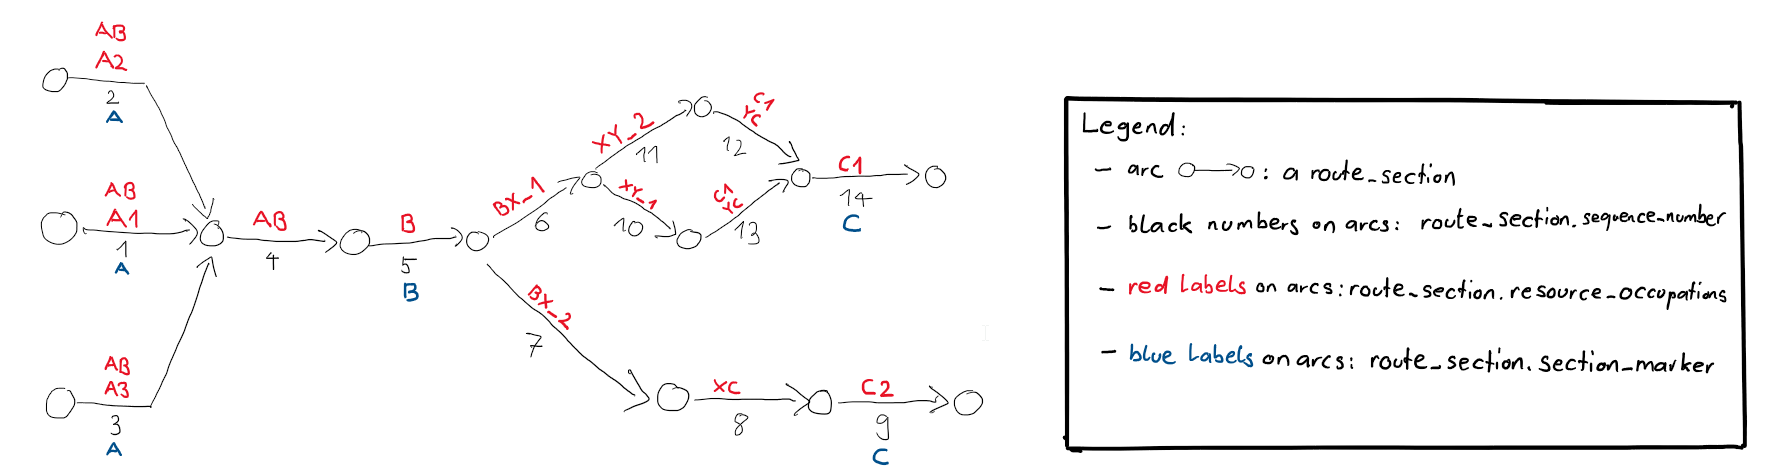 AB
A2
2
A
AB
A1
1
A
AB
A3
3
A
AB
4
B
5
B
BX_1
6
BX_2
7
XY_2
11
XY_1
10
C1
YC
12
C1
YC
13
C1
14
C
XC
8
C2
9
C
Legend:
- arc : a route_section
- black numbers on arcs: route_section.sequence_number
- red labels on arcs: route_section.resource_occupations
- blue labels on arcs: route_section.section_marker